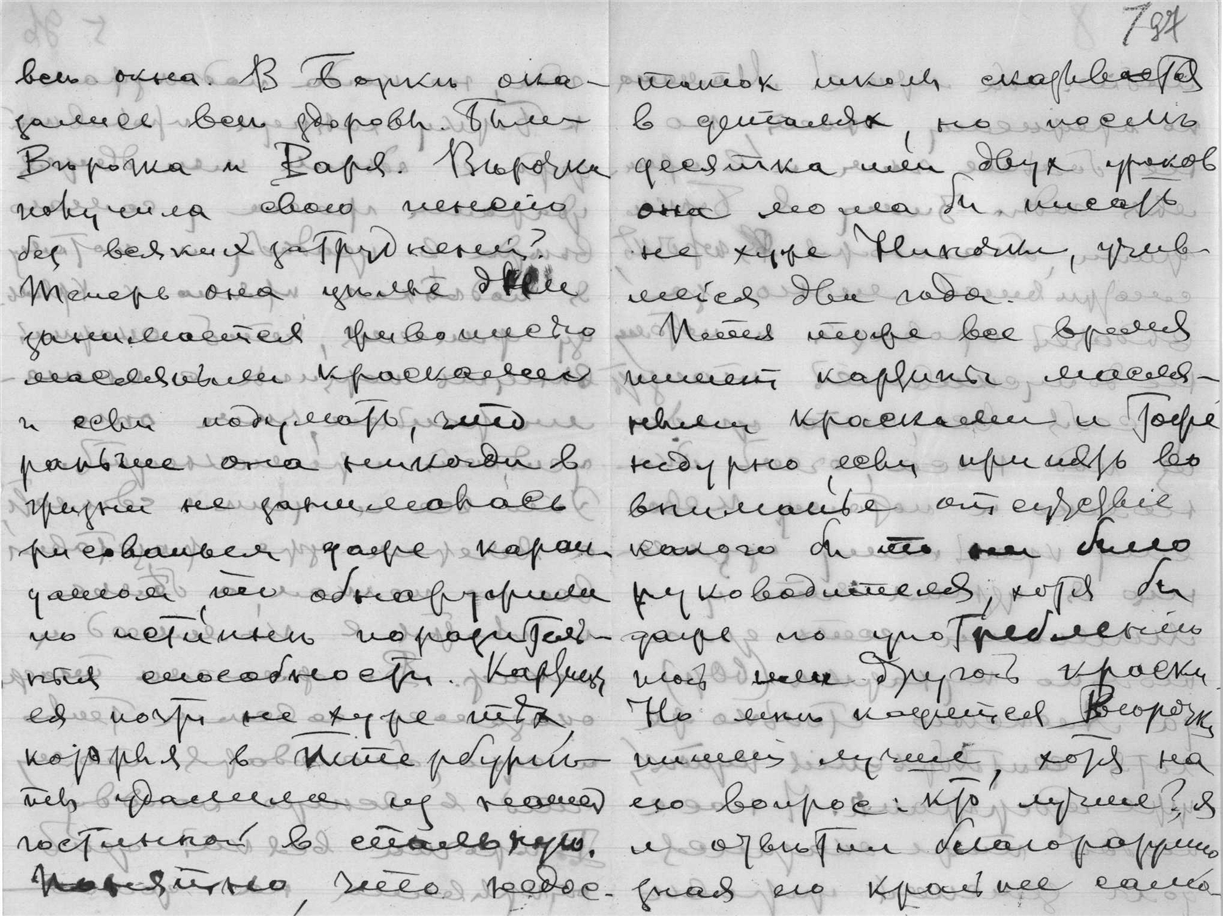 всѣ окна. В Борки ока-
зались всѣ здоровы. Были
Вѣрочка и Варя. Вѣрочка
получила свою пенсію
без всяких затрудненій?
Теперь она цѣлые дни
занимается живописью
масляными красками
и если подумать, что
раньше она никогда в
жизни не занималась
рисованьем даже каран-
дашом, то обнаружила
по истинѣ поразитель-
ныя способности. Картины
ея почти не хуже тѣх,
которыя в Петербургѣ
ты удалила из нашей
гостинной в спальную.
Понятно, что недос-
197
таток школы сказывается
в деталях, но послѣ
десятка или двух уроков
она могла бы писать
не хуже Никоди, учив-
шейся два года.
Петя тоже все время
пишет картины масля-
ными красками и тоже
недурно, если принять во
вниманье отсутствіе
какого бы то ни было
руководителя, хотя бы
даже по употребленію
той или другой краски.
Но мнѣ кажется Вѣрочка
пишет лучше, хотя на
его вопрос: кто лучше?, я
и отвѣтил благоразумно
зная его крайнее само-